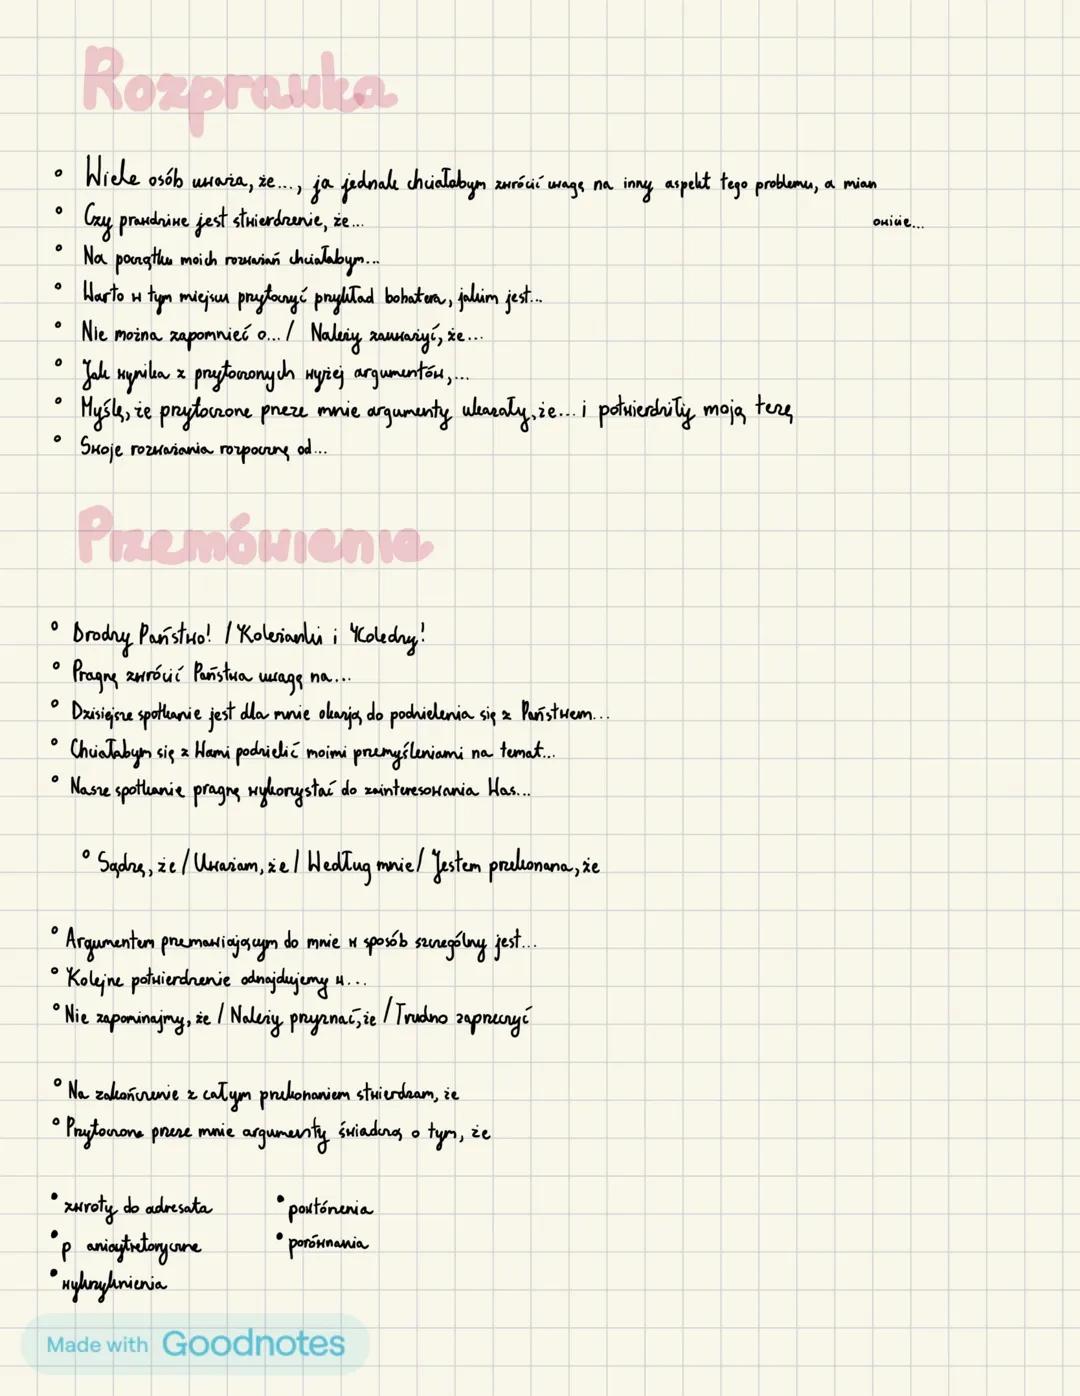 Rozprawka
• Wiele osób uważa, że..., ja jednak chciałabym zwrócić uwagę na inny aspekt tego problemu, a mian
owicie...
• Czy prawdziwe jest stwierdzenie, że...
• Na początku moich rozważań chciałabym...
• Warto w tym miejscu przytoczyć przykład bohatera, jakim jest...
• Nie można zapomnieć o... / Należy zauważyć, że...
• Jak wynika z przytoczonych wyżej argumentów,...
• Myślę, że przytoczone przeze mnie argumenty ukazały, że... i potwierdziły moją tezę
• Swoje rozważania rozpocznę od...
Przemówienie
• Drodzy Państwo! / Koleżanki i Koledzy!
• Pragnę zwrócić Państwa uwagę na...
• Dzisiejsze spotkanie jest dla mnie okazją do podzielenia się z Państwem...
• Chciałabym się z Wami podzielić moimi przemyśleniami na temat...
• Nasze spotkanie pragnę wykorzystać do zainteresowania Was...
• Sądzę, że / Uważam, że / Według mnie / Jestem przekonana, że
• Argumentem przemawiającym do mnie w sposób szczególny jest...
• Kolejne potwierdzenie odnajdujemy w...
• Nie zapominajmy, że / Należy przyznać, że / Trudno zaprzeczyć
• Na zakończenie z całym przekonaniem stwierdzam, że
• Przytoczone przeze mnie argumenty świadczą o tym, że
• zwroty do adresata
• powtórzenia
• p
• porównania
• wykrzyknienia
Made with Goodnotes